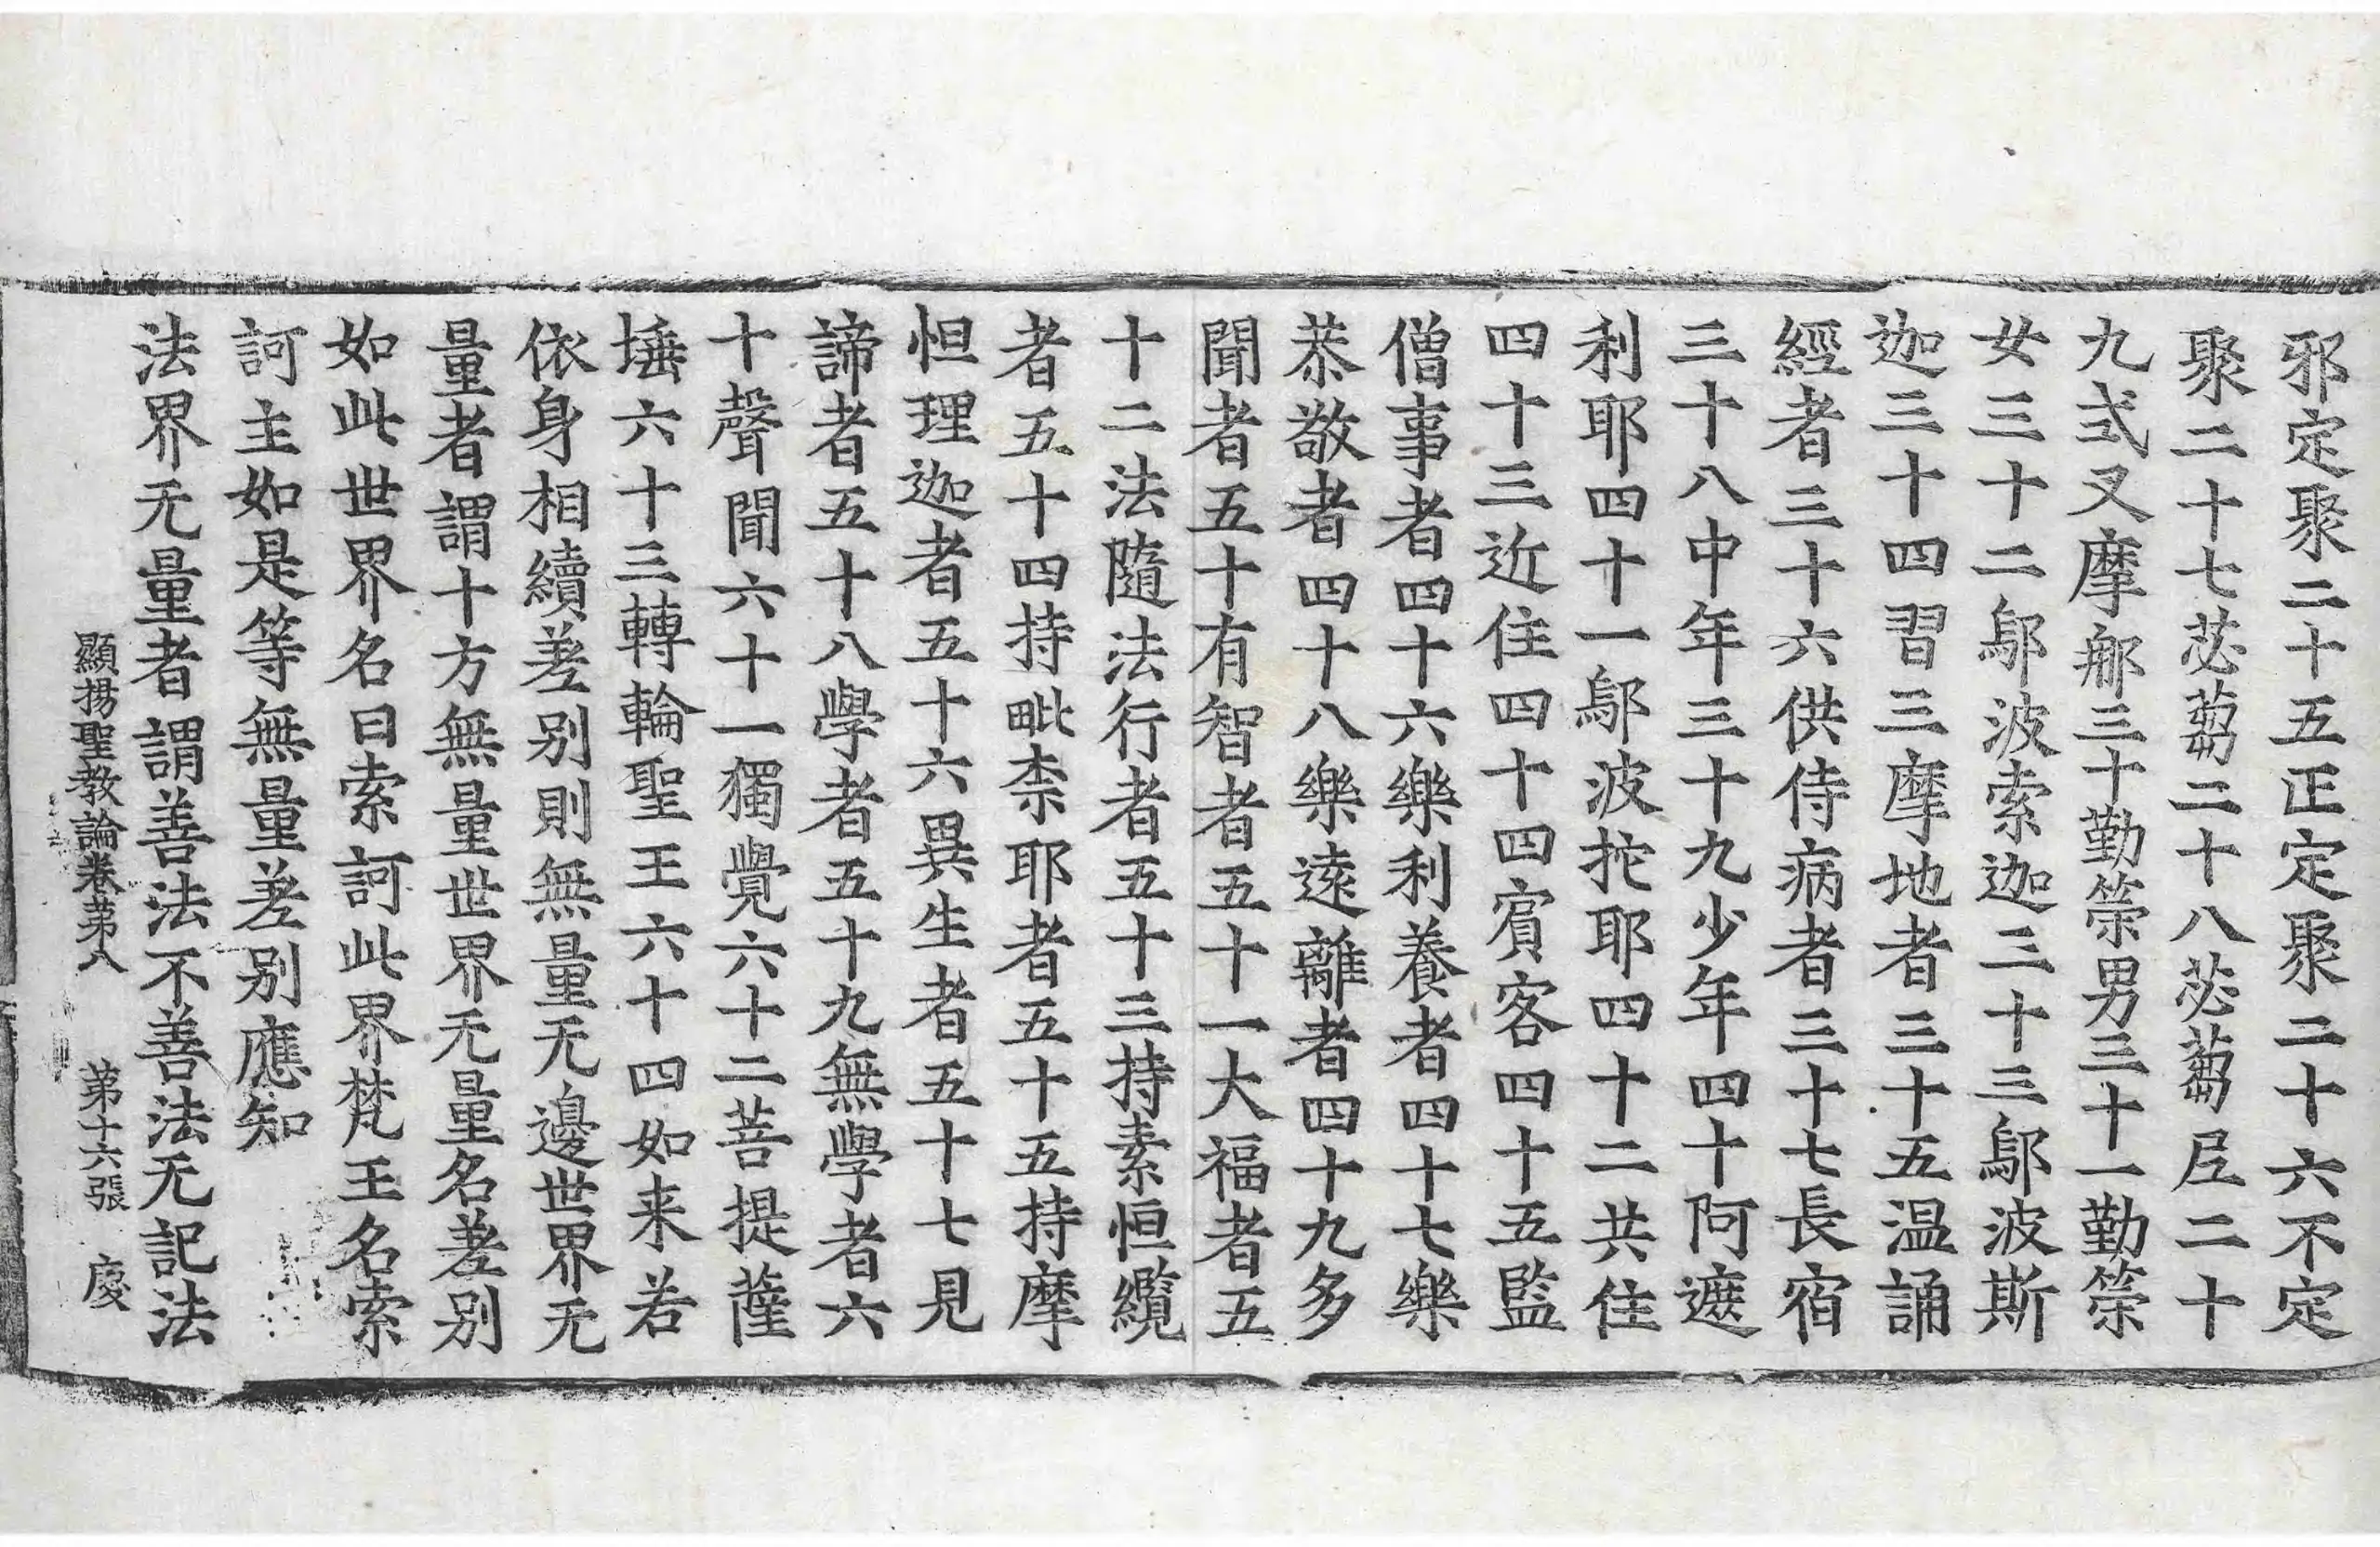 邪定聚二十五正定聚二十六不定
聚二十七苾蒭二十八苾蒭尼二十
九式叉摩那三十勤策男三十一勤策
女三十二鄔波索迦三十三鄔波斯
迦三十四習三摩地者三十五温誦
經者三十六供侍病者三十七長宿
三十八中年三十九少年四十阿遮
利耶四十一鄔波拕耶四十二共住
四十三近住四十四賔客四十五監
僧事者四十六樂利養者四十七樂
恭敬者四十八樂遠離者四十九多
聞者五十有智者五十一大福者五
十二法隨法行者五十三持素怛纜
者五十四持毗柰耶者五十五持摩
怛理迦者五十六異生者五十七見
諦者五十八學者五十九無學者六
十聲聞六十一獨覺六十二菩提薩
埵六十三轉輪聖王六十四如来若
依身相續差别則無量无邊世界无
量者謂十方無量世界无量名差别
如此世界名曰索訶此界梵王名索
訶主如是等無量差别應知
法界无量者謂善法不善法无記法
顯揚聖教論卷苐八 苐十六張 慶